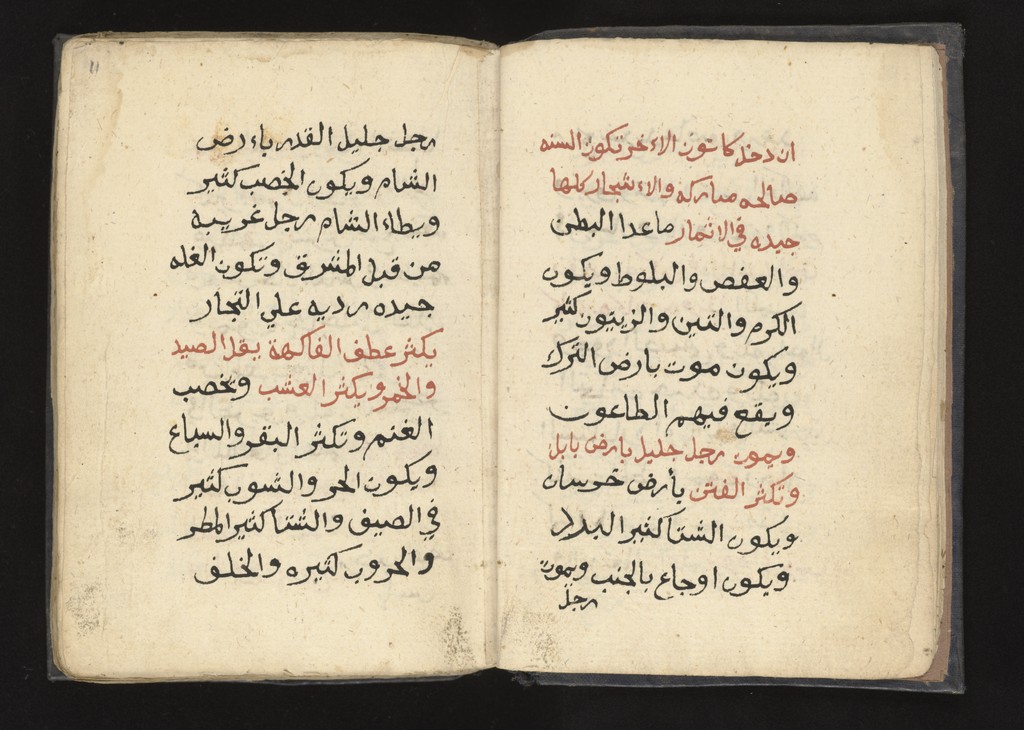 ان دخل كانون الاءخر تكون السنه
صالحه مباركه والاءشجار كلها
جيده في الاثمار ماعدا البطن
والعفص والبلوط ويكون
الكرم والتين والزيتون كثير
ويكون موت بارض الترك
ويقع فيهم الطاعون
ويموت رجل جليل بارض بابل
وتكثر الفتن بأرض خرسان
ويكون الشتا كثير البلا
ويكون اوجاع بالجنب ويموت
رجل
11
رجل جليل القدر باءرض
الشام ويكون الخصب كثير
ويطاء الشام رجل غريب
من قبل المشرق وتكون الغله
جيده رديه علي التجار
يكثر عطف الفاكهة يقل الصيد
والخمر ويكثر العشب وتخصب
الغنم وتكثر البقر والسباع
ويكون الحر والشوب كثير
في الصيف والشتا كثير المطر
والحروب كثيره والخلف